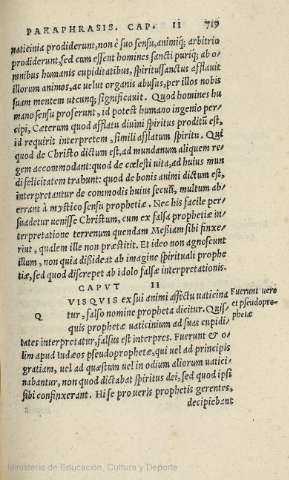 PARAPHRASIS. CAP. II 719
naticinia prodiderunt, non è suo sensu, animiq; arbitrio
prodiderunt, sed cum essent homines sancti puriq; ab o-
mnibus humanis cupiditatibus, spiritussanctus afflauit
illorum animos, ac uelut organis abusus, per illos nobis
suam mentem utcunq; significauit. Quod homines hu
mano sensu proferunt, id potest humano ingenio per-
cipi, Cæterum quod afflatu diuini spiritus proditũ est,
id requirit interpretem, simili afflatum spiritu. Qui
quod de Christo dictum est, ad mundanum aliquem re-
gem accommodant: quod de cœlesti uita, ad huius mun
di felicitatem trahunt: quod de bonis animi dictum est,
interpretantur de commodis huius seculi, multum ab-
errant à mystico sensu prophetiæ. Nec his facile per-
suadetur uenisse Christum, cum ex falsa prophetiæ in-
terpretatione terrenum quendam Messiam sibi finxe-
rint, qualem ille non præstitit. Et ideo non agnoscunt
illum, non quia dissideat ab imagine spiritualis prophe
tiæ, sed quod discrepet ab idolo falsæ interpretationis.
CAPVT II
QVISQVIS ex sui animi affectu uaticina
Fuerunt uero
tur, falso nomine propheta dicitur. Quis-
et pseudopro-
quis prophetæ uaticinium ad suas cupidi-
phetæ
tates interpretatur, falsus est interpres. Fuerunt & o-
lim apud Iudæos pseudoprophetæ, qui uel ad principis
gratiam, uel ad quæstum uel in odium aliorum uatici-
nabantur, non quod dictabat spiritus dei, sed quod ipsi
sibi confinxerant. Hi se pro ueris prophetis gerentes,
decipiebant
Ministerio de Educación, Cultura y Deporte